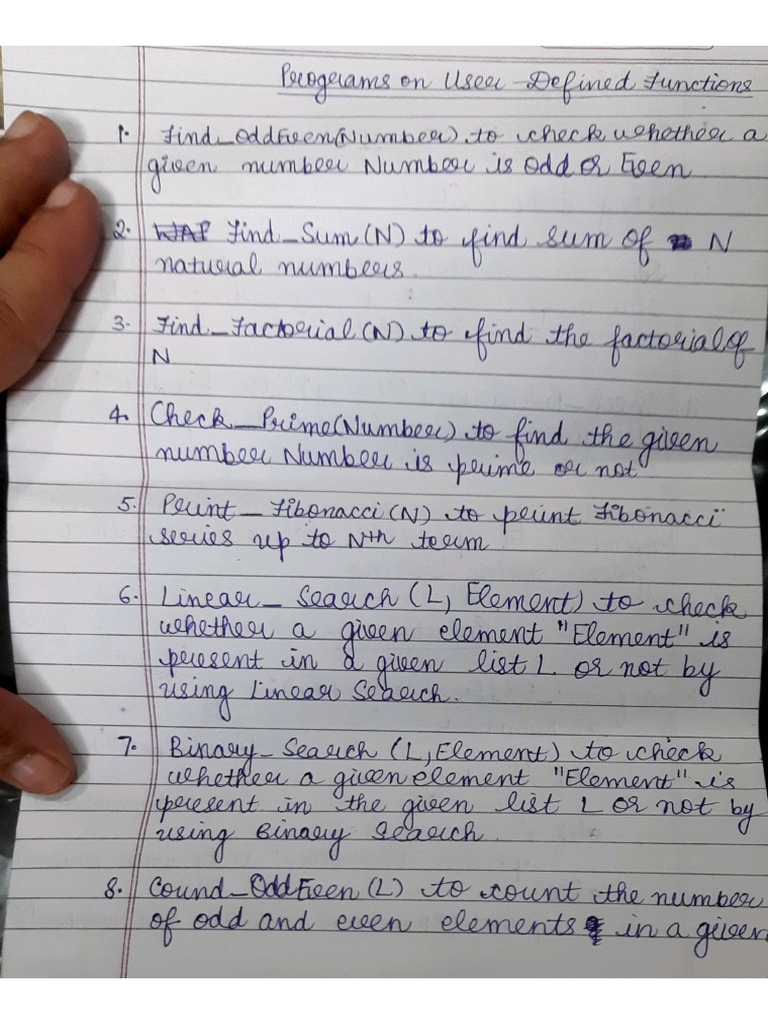 Programs on User-Defined Functions
1. Find_OddEven(Number) to check whether a
given number Number is odd or Even
2. Find_Sum(N) to find sum of N
natural numbers.
3. Find_Factorial(N) to find the factorial of
N
4. Check_Prime(Number) to find the given
number Number is prime or not
5. Print_Fibonacci(N) to print Fibonacci
series up to Nth term
6. Linear_Search(L, Element) to check
whether a given element "Element" is
present in a given list L or not by
using Linear Search.
7. Binary_Search(L,Element) to check
whether a given element "Element" is
present in the given list L or not by
using Binary Search.
8. Cound_OddEven(L) to count the number
of odd and even elements in a given